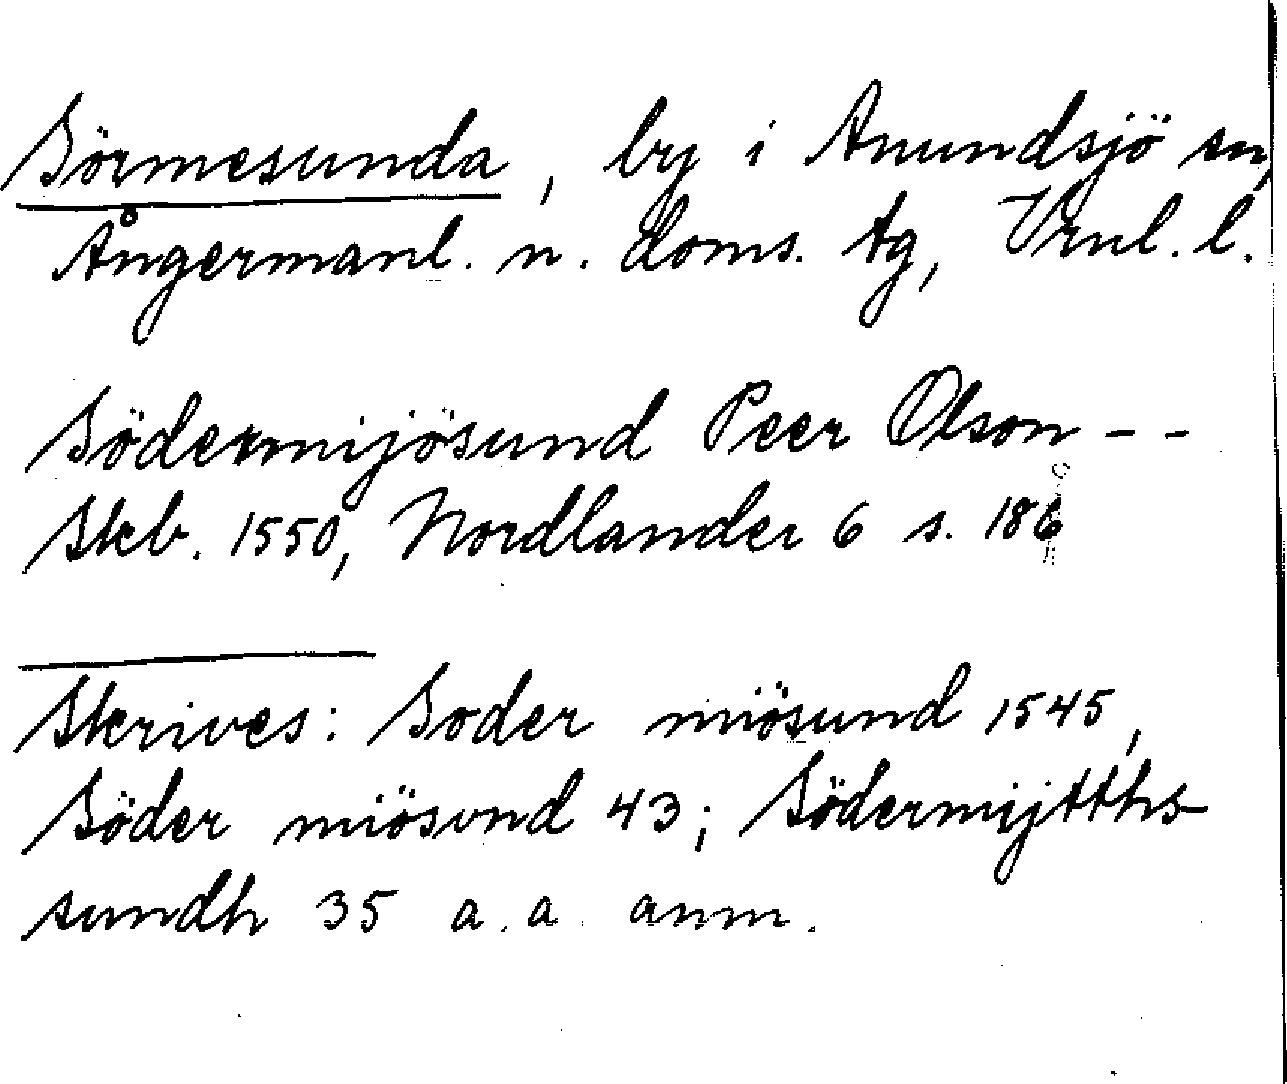 Sörmesunda, by i Anundsjö sn,
Ångermanl. n. doms. tg, Vrnl. l.
Södermijösund Peer Olson - -
Skb. 1550, Nordlander 6 s. 186
Skrives: Soder miösund 1545,
Söder miösvnd 43; Södermijtths-
sundh 35 a. a. anm.